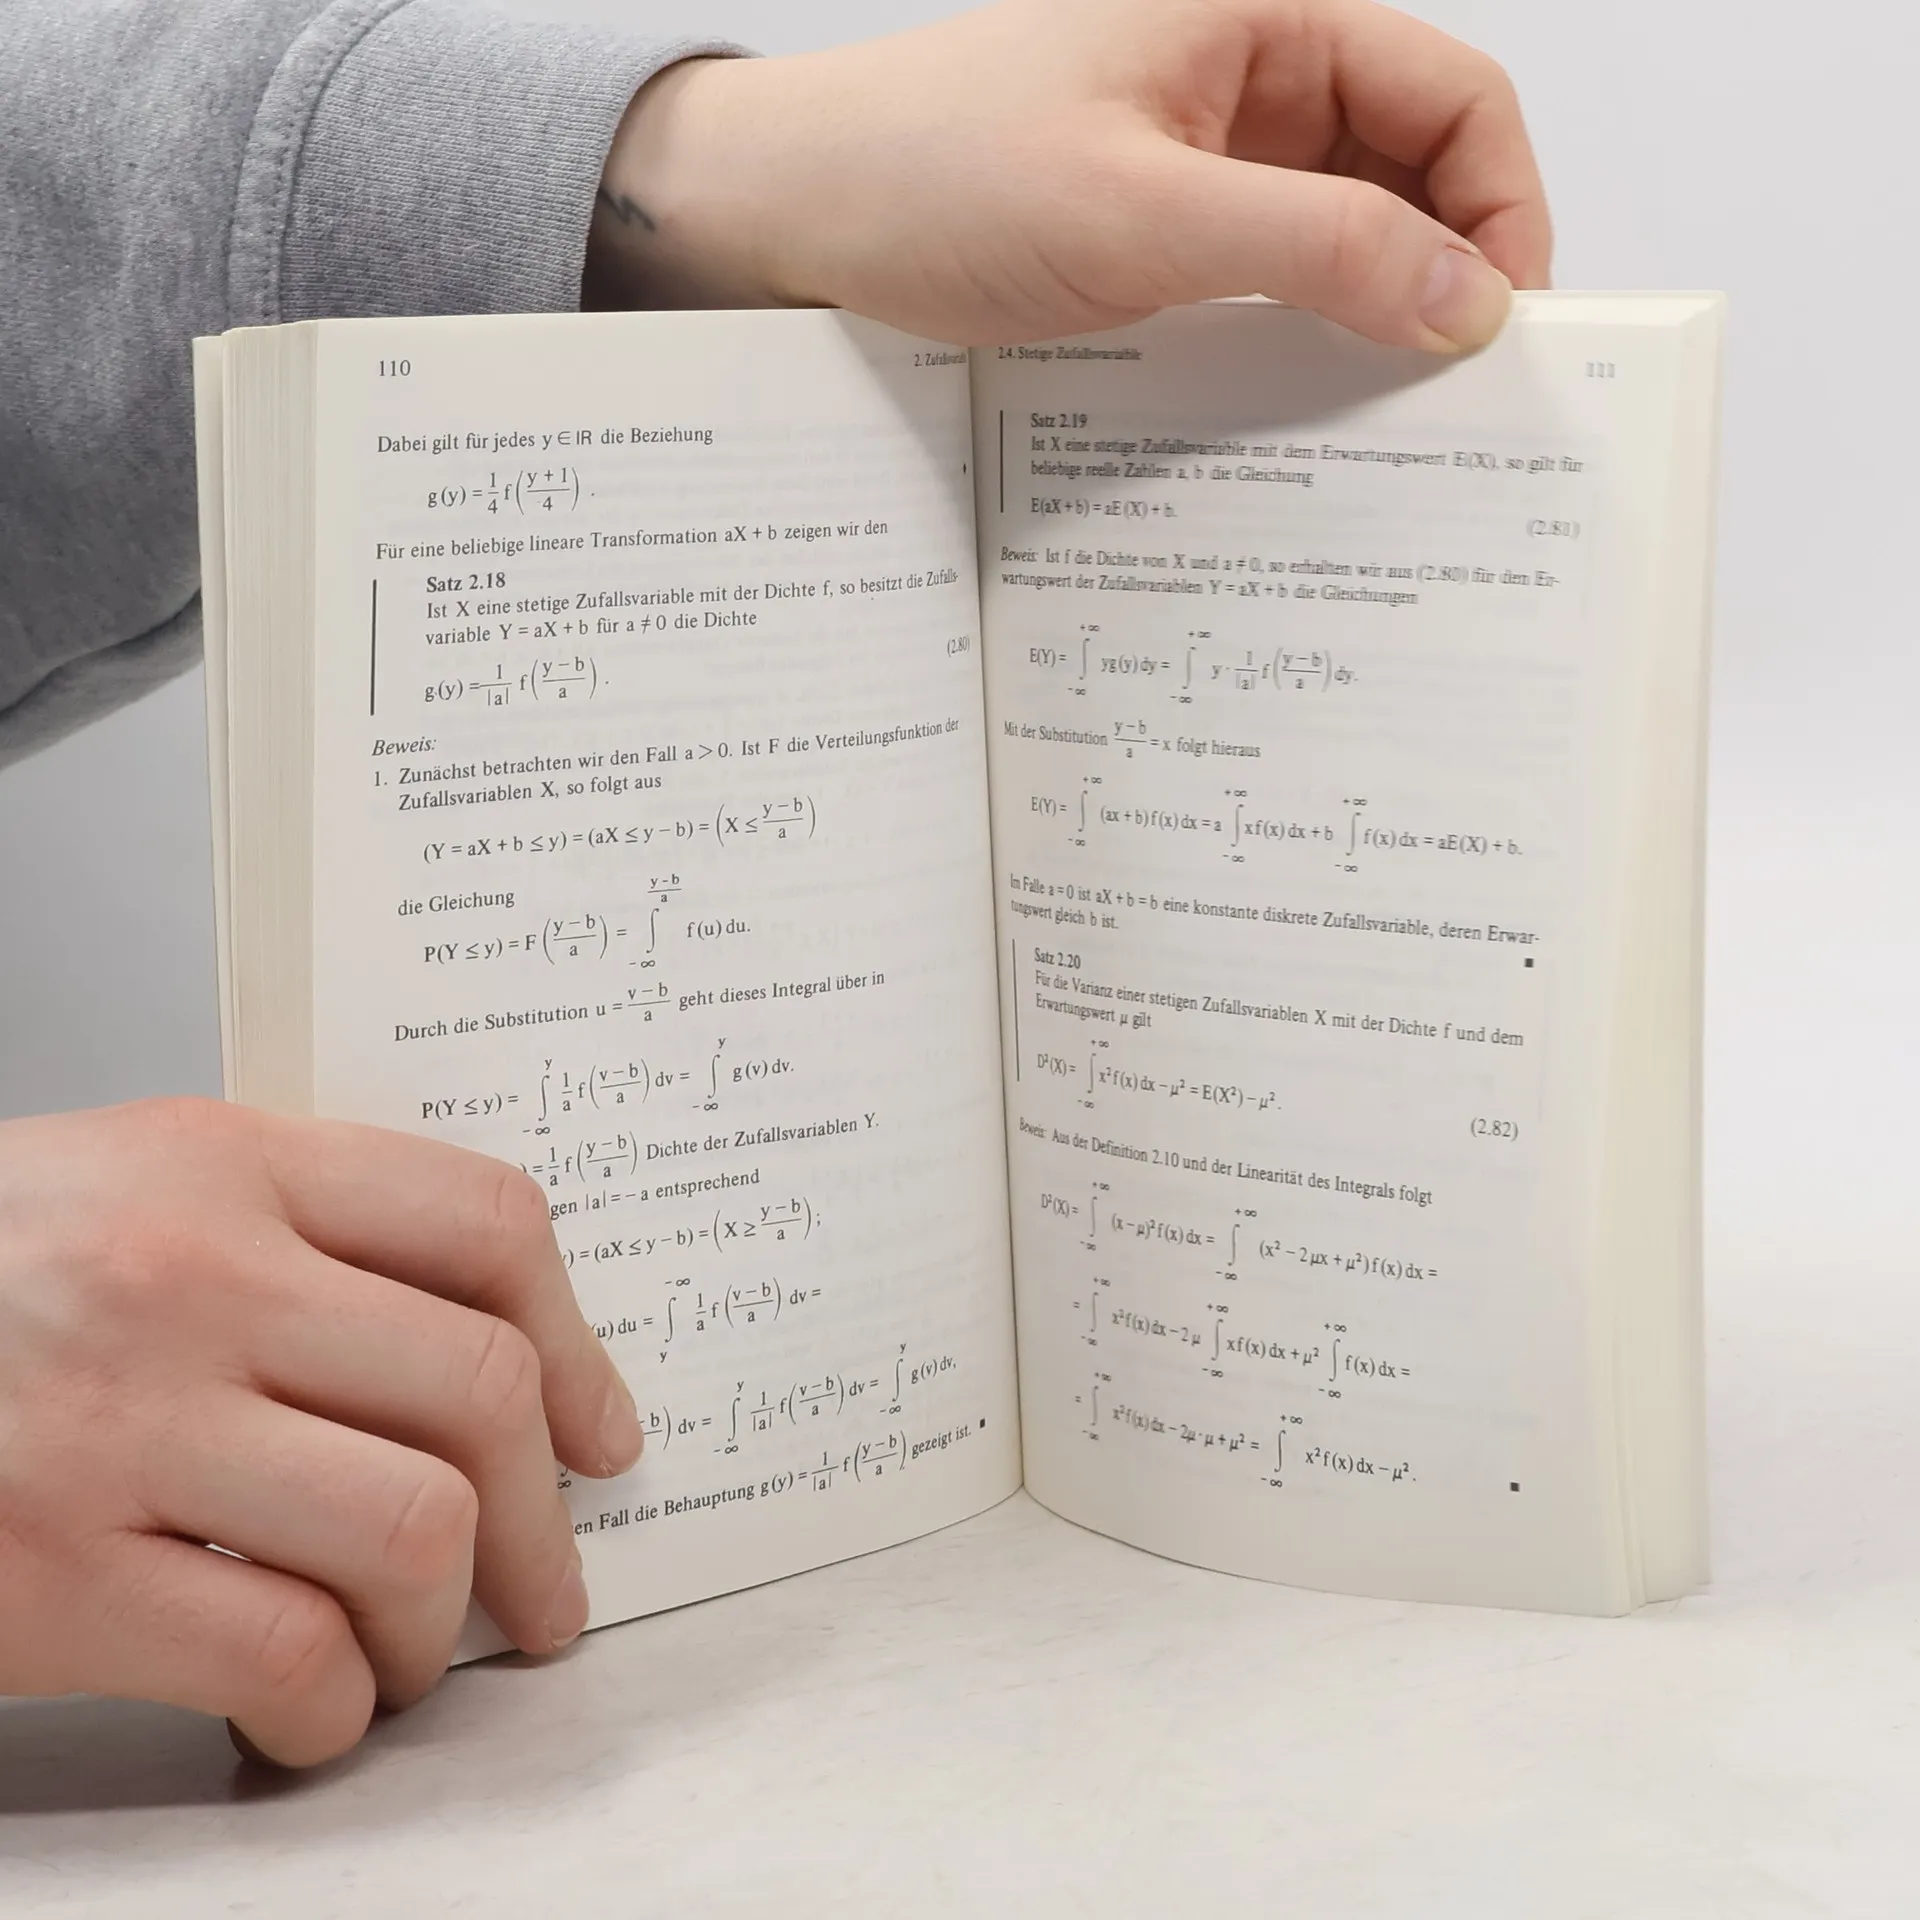 110
2. Zufallsvari
Dabei gilt für jedes y ∈ IR die Beziehung
g(y) = 1/4 f((y + 1)/4) .
Für eine beliebige lineare Transformation aX + b zeigen wir den
Satz 2.18
Ist X eine stetige Zufallsvariable mit der Dichte f, so besitzt die Zufalls-
variable Y = aX + b für a ≠ 0 die Dichte
g(y) = 1/|a| f((y − b)/a) . (2.80)
Beweis:
1. Zunächst betrachten wir den Fall a > 0. Ist F die Verteilungsfunktion der
Zufallsvariablen X, so folgt aus
(Y = aX + b ≤ y) = (aX ≤ y − b) = (X ≤ (y − b)/a)
die Gleichung
P(Y ≤ y) = F((y − b)/a) = ∫_{−∞}^{(y−b)/a} f(u) du.
Durch die Substitution u = (v − b)/a geht dieses Integral über in
P(Y ≤ y) = ∫_{−∞}^{y} 1/a f((v − b)/a) dv = ∫_{−∞}^{y} g(v) dv.
) = 1/a f((y − b)/a) Dichte der Zufallsvariablen Y.
gen |a| = − a entsprechend
) = (aX ≤ y − b) = (X ≥ (y − b)/a);
(u) du = ∫_{y}^{−∞} 1/a f((v − b)/a) dv =
− b) dv = ∫_{−∞}^{y} 1/|a| f((v − b)/a) dv = ∫_{−∞}^{y} g(v) dv,
en Fall die Behauptung g(y) = 1/|a| f((y − b)/a) gezeigt ist. ■
2.4. Stetige Zufallsvariable
111
Satz 2.19
Ist X eine stetige Zufallsvariable mit dem Erwartungswert E(X), so gilt für
beliebige reelle Zahlen a, b die Gleichung
E(aX + b) = aE(X) + b. (2.81)
Beweis: Ist f die Dichte von X und a ≠ 0, so erhalten wir aus (2.80) für den Er-
wartungswert der Zufallsvariablen Y = aX + b die Gleichungen
E(Y) = ∫_{−∞}^{+∞} yg(y) dy = ∫_{−∞}^{+∞} y · 1/|a| f((y − b)/a) dy.
Mit der Substitution (y − b)/a = x folgt hieraus
E(Y) = ∫_{−∞}^{+∞} (ax + b) f(x) dx = a ∫_{−∞}^{+∞} xf(x) dx + b ∫_{−∞}^{+∞} f(x) dx = aE(X) + b.
Im Falle a = 0 ist aX + b = b eine konstante diskrete Zufallsvariable, deren Erwar-
tungswert gleich b ist. ■
Satz 2.20
Für die Varianz einer stetigen Zufallsvariablen X mit der Dichte f und dem
Erwartungswert μ gilt
D²(X) = ∫_{−∞}^{+∞} x² f(x) dx − μ² = E(X²) − μ². (2.82)
Beweis: Aus der Definition 2.10 und der Linearität des Integrals folgt
D²(X) = ∫_{−∞}^{+∞} (x − μ)² f(x) dx = ∫_{−∞}^{+∞} (x² − 2μx + μ²) f(x) dx =
= ∫_{−∞}^{+∞} x² f(x) dx − 2μ ∫_{−∞}^{+∞} xf(x) dx + μ² ∫_{−∞}^{+∞} f(x) dx =
= ∫_{−∞}^{+∞} x² f(x) dx − 2μ · μ + μ² = ∫_{−∞}^{+∞} x² f(x) dx − μ². ■